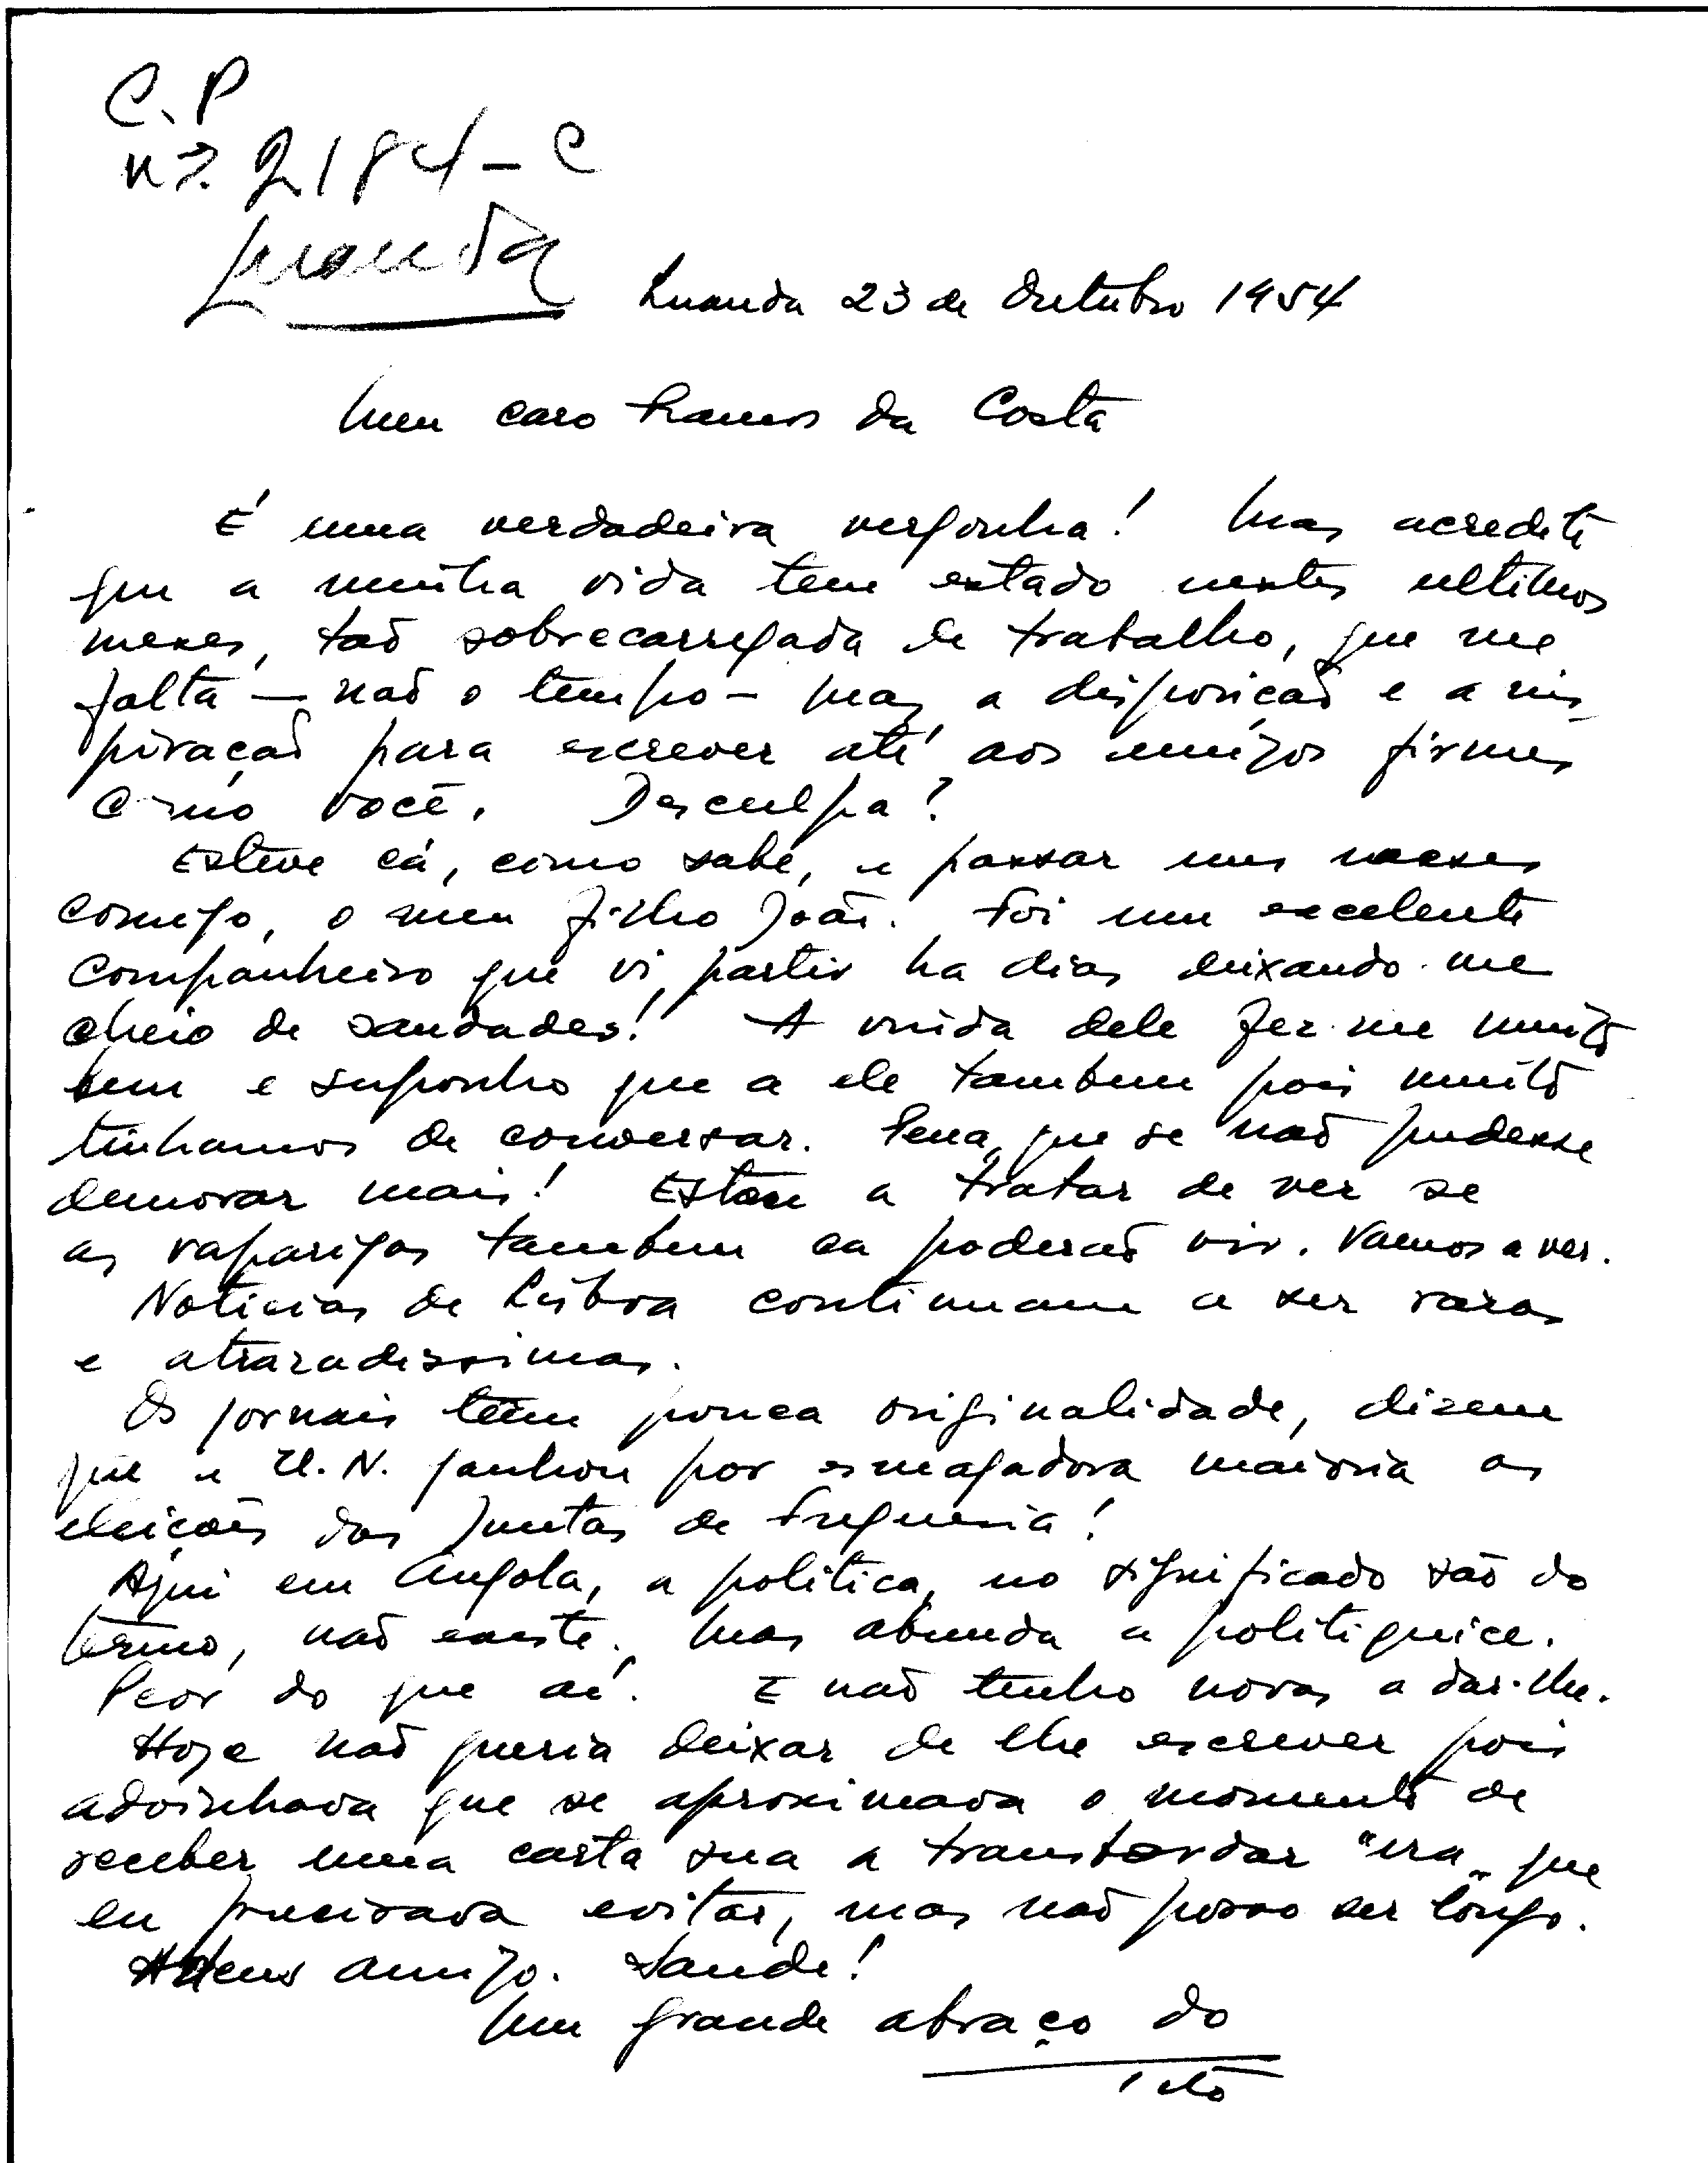 C.P
nº 2184-C
Luanda
Luanda 23 de Outubro 1954
Meu caro Ramos da Costa
É uma verdadeira vergonha! Mas acredite
que a minha vida tem estado nestes ultimos
meses, taõ sobrecarregada de trabalho, que me
falta — naõ o tempo — mas a disposiçaõ e a ins
piraçaõ para escrever até aos amigos firmes
como você. Desculpa?
Esteve cá, como sabe, a passar uns meses
comigo, o meu filho Joaõ. Foi um excelente
companheiro que vi partir ha dias deixando-me
cheio de saudades! A vinda dele fez-me muito
bem e suponho que a ele tambem pois muito
tinhamos de conversar. Pena que se naõ pudesse
demorar mais! Estou a tratar de ver se
as raparigas tambem ca poderaõ vir. Vamos a ver.
Noticias de Lisboa continuam a ser raras
e atrazadissimas.
Os jornais têm pouca originalidade, dizem
que a U.N. ganhou por esmagadora maioria as
eleições das Juntas de Freguesia!
Aqui em Angola, a politica, no significado saõ do
têrmo, naõ existe. Mas abunda a politiquice.
Peor do que aí. E naõ tenho novas a dar-lhe.
Hoje naõ queria deixar de lhe escrever pois
advinhava que se aproximava o momento de
receber uma carta sua a transbordar "ira" que
eu precisava evitar, mas naõ posso ser longo.
Adeus amigo. Saude!
Um grande abraço do